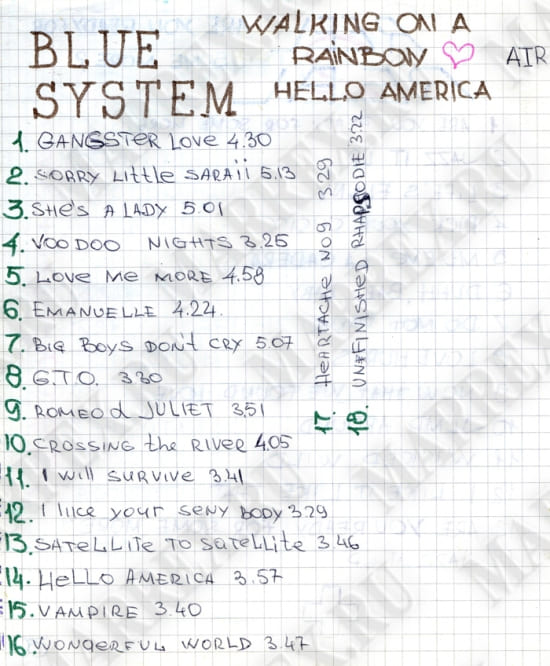 BLUE SYSTEM
WALKING ON A RAINBOW
HELLO AMERICA
AIR
1. GANGSTER LOVE 4.30
2. SORRY LITTLE SARAii 5.13
3. SHE'S A LADY 5.01
4. VOODOO NIGHTS 3.25
5. LOVE ME MORE 4.58
6. EMANUELLE 4.24.
7. BIG BOYS DON't CRY 5.07
8. G.T.O. 3.30
9. ROMEO d JULIET 3.51
10. CROSSING the RIVER 4.05
11. I will SURVIVE 3.41
12. I like your SENY BODY 3.29
13. SATELLITE TO SATELLITE 3.46
14. HELLO AMERICA 3.57
15. VAMPIRE 3.40
16. WONGERFUL WORLD 3.47
17. HEARTACHE NO9 3.29
18. UNFINISHED RHAPSODIE 3.22
MARREX.RU